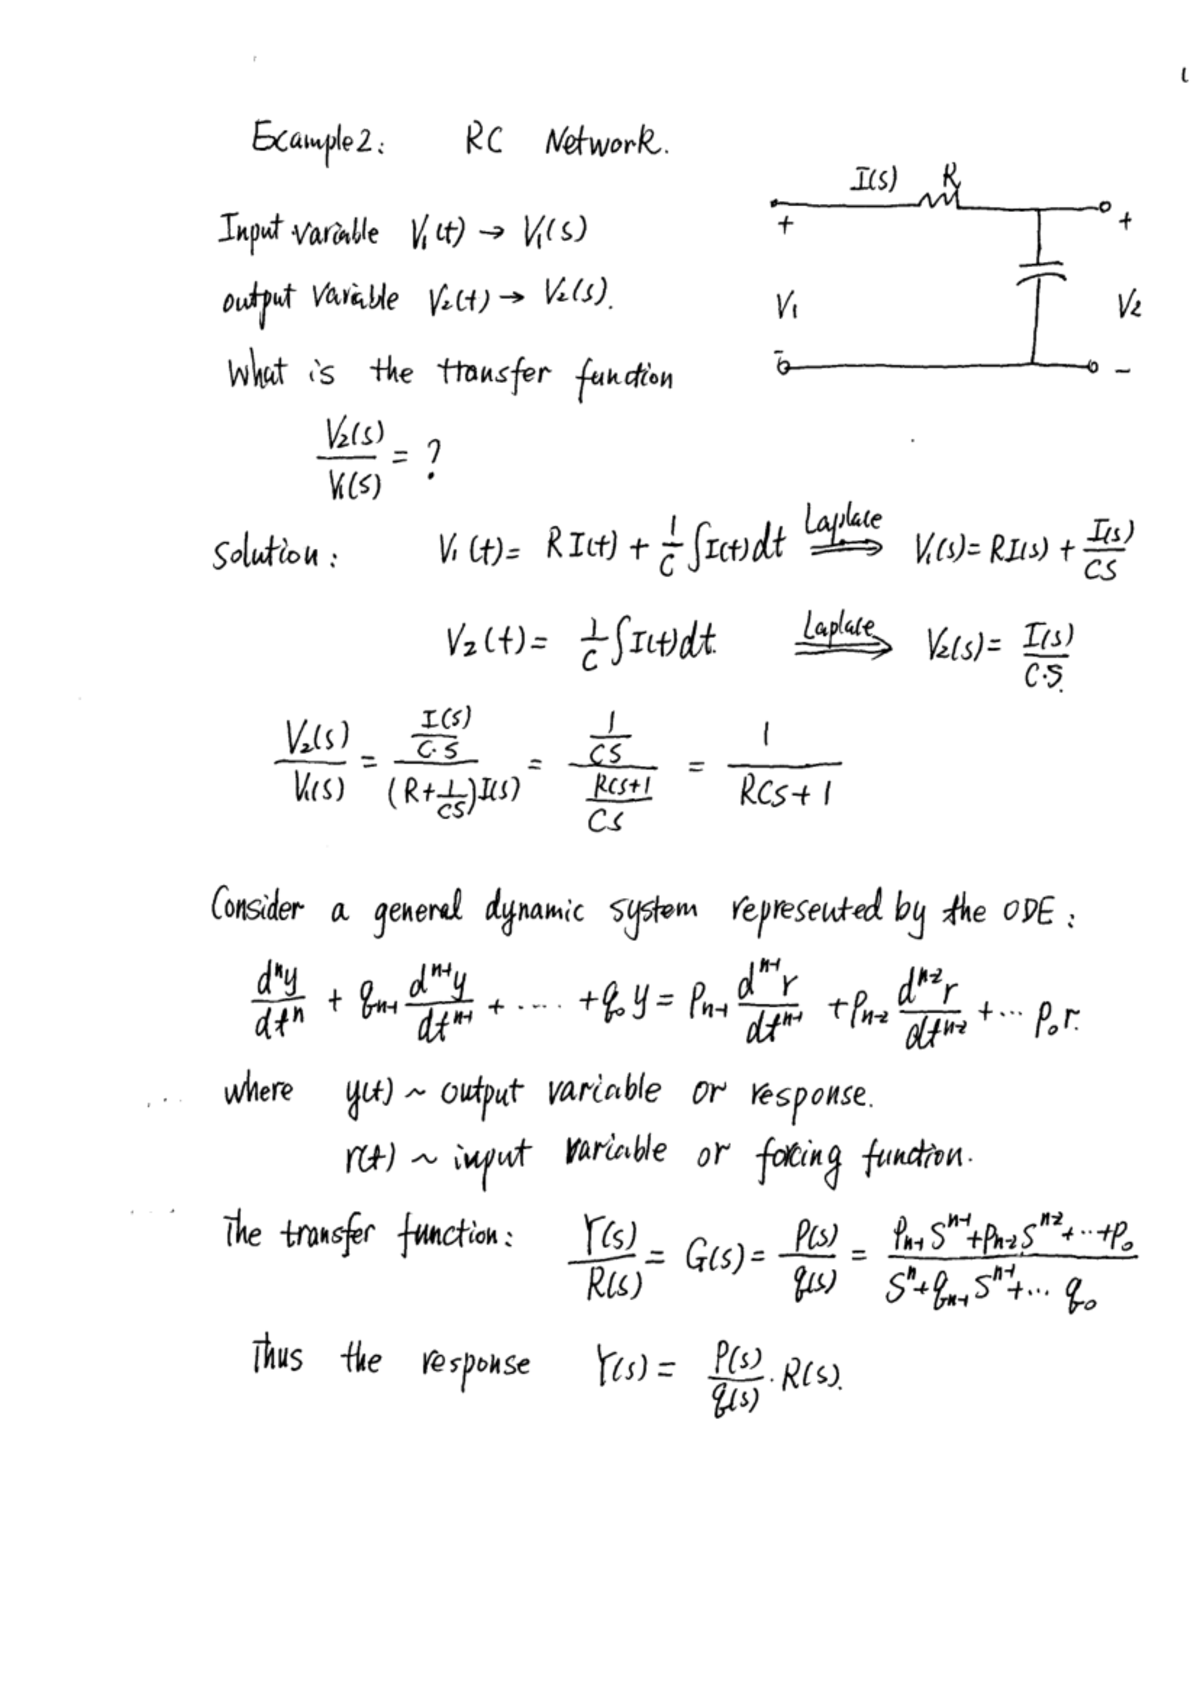 Example 2: RC Network.
I(s) R
Input variable V₁(t) → V₁(s)
+ +
output variable V₂(t) → V₂(s).
V₁ V₂
What is the transfer function
- -
V₂(s)/V₁(s) = ?
Solution: V₁(t) = R I(t) + 1/C ∫I(t)dt Laplace ⟹ V₁(s) = RI(s) + I(s)/CS
V₂(t) = 1/C ∫I(t)dt. Laplace ⟹ V₂(s) = I(s)/C·S.
V₂(s)/V₁(s) = (I(s)/C·S)/((R+1/CS)I(s)) = (1/CS)/((RCS+1)/CS) = 1/(RCS+1)
Consider a general dynamic system represented by the ODE:
dⁿy/dtⁿ + qₙ₋₁ dⁿ⁻¹y/dtⁿ⁻¹ + ..... + q₀y = Pₙ₋₁ dⁿ⁻¹r/dtⁿ⁻¹ + Pₙ₋₂ dⁿ⁻²r/dtⁿ⁻² + ... P₀r.
where y(t) ~ output variable or response.
r(t) ~ input variable or forcing function.
The transfer function: Y(s)/R(s) = G(s) = P(s)/q(s) = (Pₙ₋₁Sⁿ⁻¹+Pₙ₋₂Sⁿ⁻²+...+P₀)/(Sⁿ+qₙ₋₁Sⁿ⁻¹+... q₀)
Thus the response Y(s) = P(s)/q(s) · R(s).